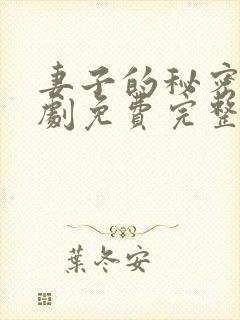 妻子的秘密
劇免費完整
葉冬安